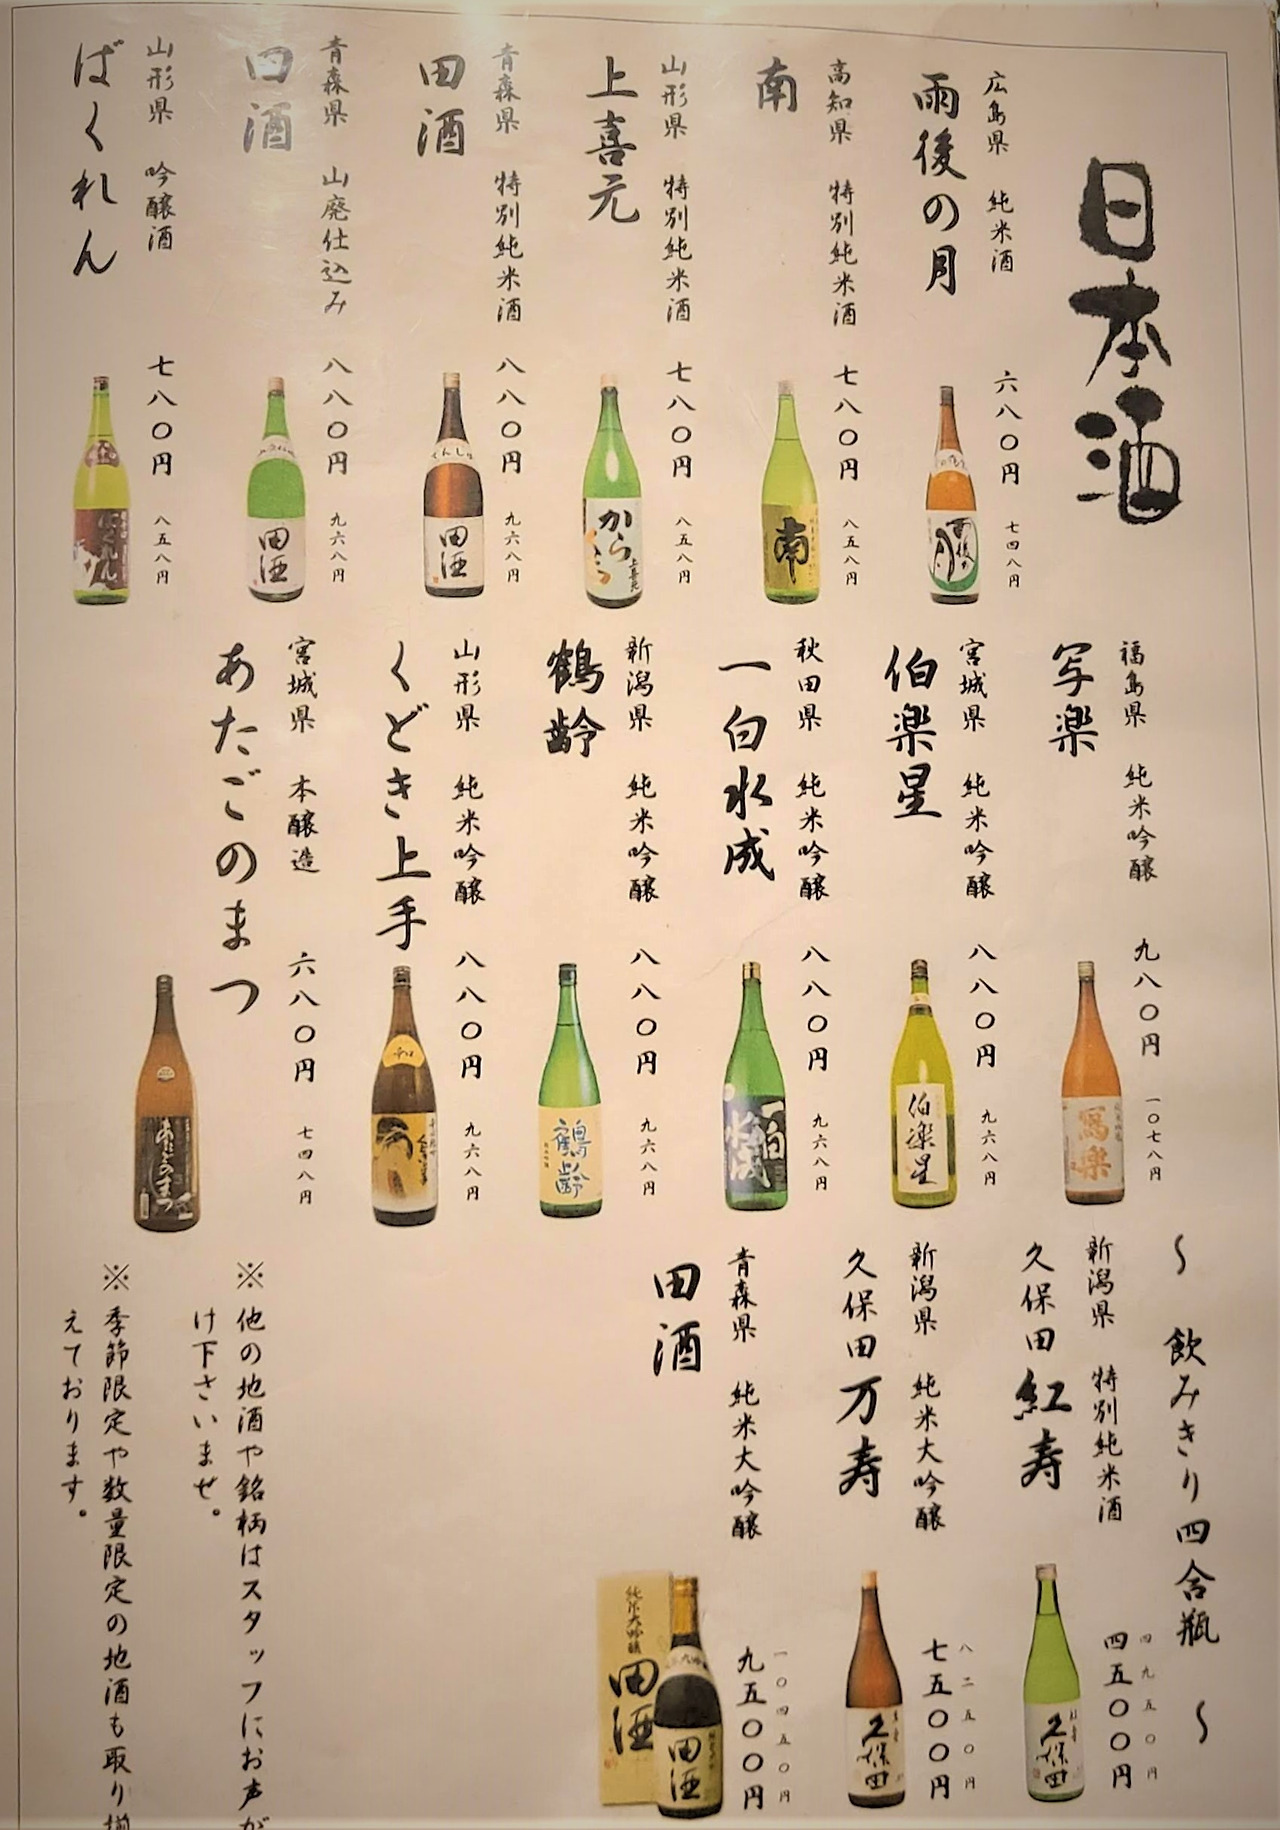 日本酒
広島県 純米酒
雨後の月
六八〇円
七四八円
高知県 特別純米酒
南
七八〇円
八五八円
山形県 特別純米酒
上喜元
七八〇円
八五八円
青森県 特別純米酒
田酒
八八〇円
九六八円
青森県 山廃仕込み
田酒
八八〇円
九六八円
山形県 吟醸酒
ばくれん
七八〇円
八五八円
福島県 純米吟醸
写楽
九八〇円
一〇七八円
宮城県 純米吟醸
伯楽星
八八〇円
九六八円
秋田県 純米吟醸
一白水成
八八〇円
九六八円
新潟県 純米吟醸
鶴齢
八八〇円
九六八円
山形県 純米吟醸
くどき上手
八八〇円
九六八円
宮城県 本醸造
あたごのまつ
六八〇円
七四八円
〜 飲みきり四合瓶 〜
新潟県 特別純米酒
久保田 紅寿
四五〇〇円
四九五〇円
新潟県 純米大吟醸
久保田 万寿
七五〇〇円
八二五〇円
青森県 純米大吟醸
田酒
九五〇〇円
一〇四五〇円
※他の地酒や銘柄はスタッフにお声が
け下さいませ。
※季節限定や数量限定の地酒も取り揃
えております。
雨後の月
南
から
上喜元
てんしゅ
田酒
田酒
ばくれん
寫楽
伯楽星
一白水成
鶴齢
あたごのまつ
久保田
久保田
純米大吟醸
田酒
田酒